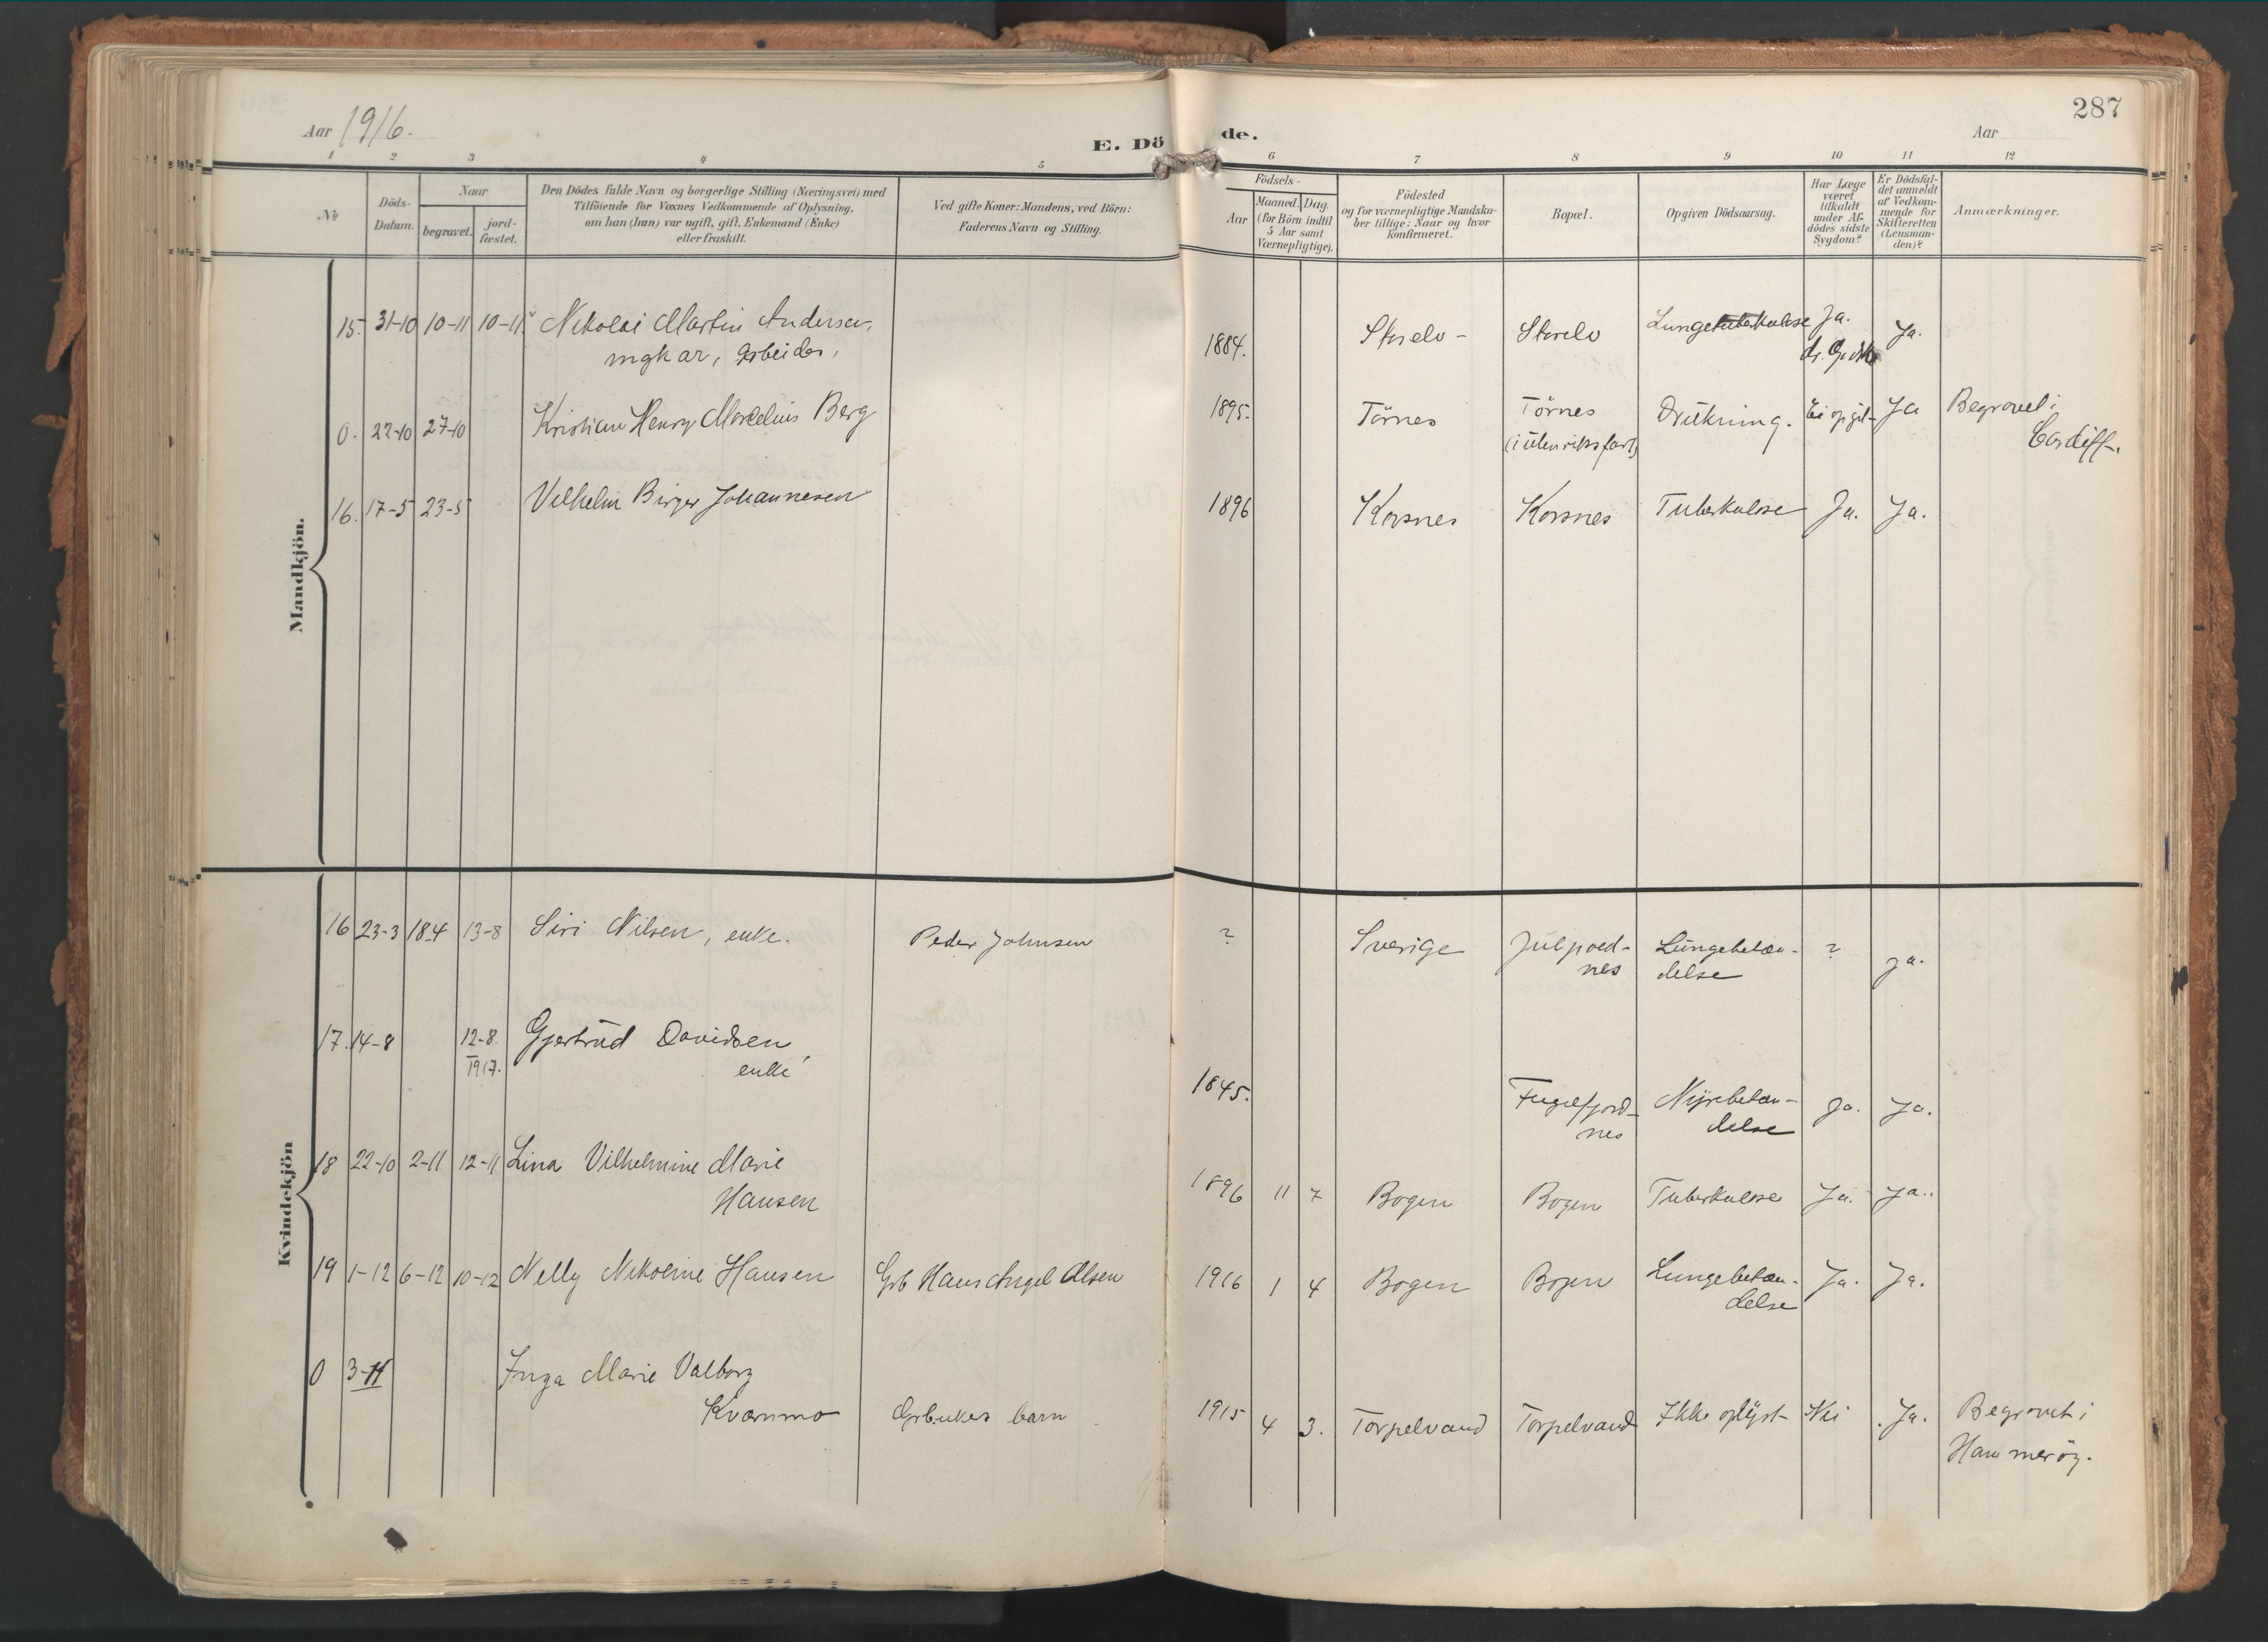 287
Aar 1916.
E. Dö de.
Aar
1 2 3 4 5 6 7 8 9 10 11 12
No
Döds-
Datum.
Naar
begravet.
jord-
fæstet.
Den Dödes fulde Navn og borgerlige Stilling (Næringsvei) med
Tilföiende for Voxnes Vedkommende af Oplysning,
om han (hun) var ugift, gift, Enkemand (Enke)
eller fraskilt.
Ved gifte Koner: Mandens, ved Börn:
Faderens Navn og Stilling.
Födsels-
Aar
Maaned. Dag.
(for Börn indtil
5 Aar samt
Værnepligtige).
Födested
og for værnepligtige Mandska-
ber tillige: Naar og hvor
konfirmeret.
Bopæl.
Opgiven Dödsaarsag.
Har Læge
været
tilkaldt
under Af-
dödes sidste
Sygdom?
Er Dödsfal-
det anmeldt
af Vedkom-
mende for
Skifteretten
(Lensman-
den)?
Anmærkninger.
Mandkjön.
15. 31-10 10-11 10-11 Nikolai Martin Andersen, 1884. Storelv - Storelv Lungetuberkulose Ja. Ja.
ungkar, arbeider, dr.
0. 22-10 27-10 Kristian Henry Marcelius Berg 1895. Törnes Törnes Drukning. Ei opgit Ja Begravet i
(i utenriksfart) Cardiff.
16. 17-5 23-5 Vilhelm Birger Johannesen 1896 Korsnes Korsnes Tuberkulose Ja. Ja.
Kvindekjön
16 23-3 18-4 13-8 Siri Nilsen, enke. Peder Johnsen ? Sverige Lungebetæn- ? Ja.
nes delse
17. 14-8 12-8 Gjertrud Davidsen,
1917. enke
1845. Fuglfjord- Nyrebetæn- Ja. Ja.
nes delse
18 22-10 2-11 12-11 Lina Vilhelmine Marie
Hansen 1896 11 7 Bogen Bogen Tuberkulose Ja. Ja.
19 1-12 6-12 10-12 Nelly Nikoline Hansen Grb Hans Angel Olsen 1916 1 4 Bogen Bogen Lungebetæn- Ja. Ja.
delse
0 3-11 Inga Marie Valborg
Kvammo Grbrukers barn 1915 4 3. Torpelvand Torpelvand Ikke oplyst Nei Ja. Begravet i
Hammeröy.